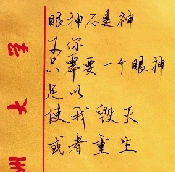 眼神不是神
于你
只需要一个眼神
足以
使我毁灭
或者重生
州大学